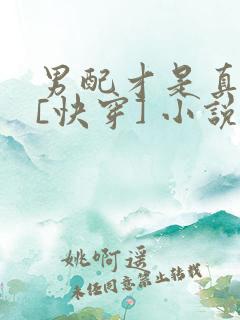 男配才是真
[快穿] 小说
姚啊遥
未经同意禁止转载